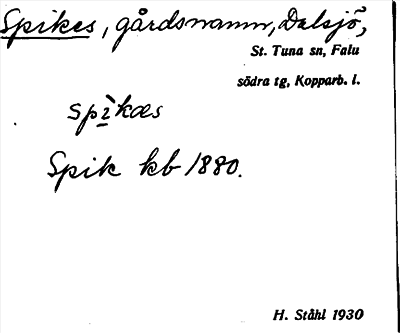 Spikes, gårdsnamn, Dalsjö,
St. Tuna sn, Falu
södra tg, Kopparb. l.
spì̱kæs
Spik kb 1880.
H. Ståhl 1930